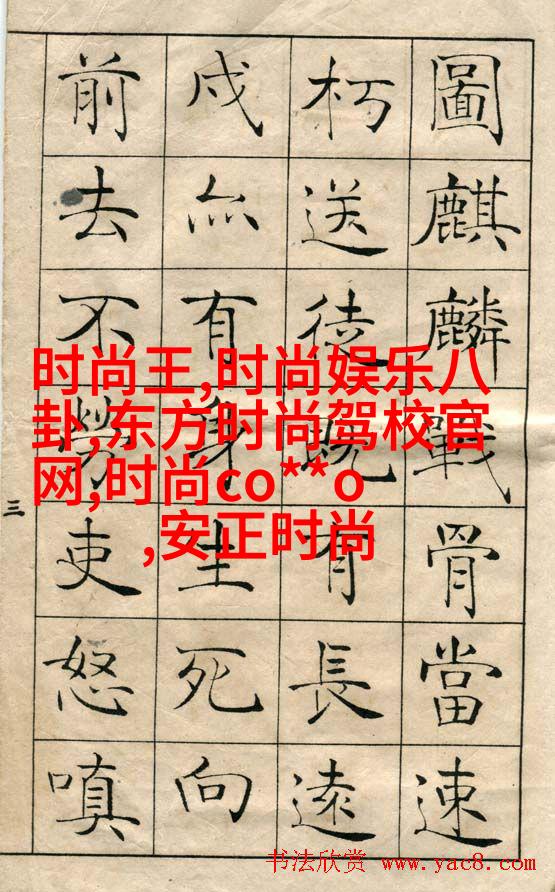 圖麒麟戰骨當速
朽送徒既有長遠
戍亦有身生死向
前去不勞吏怒嗔
三
时尚王,时尚娱乐八
卦,东方时尚驾校官
网,时尚co**o
,安正时尚
书法欣赏 www.yac8.com